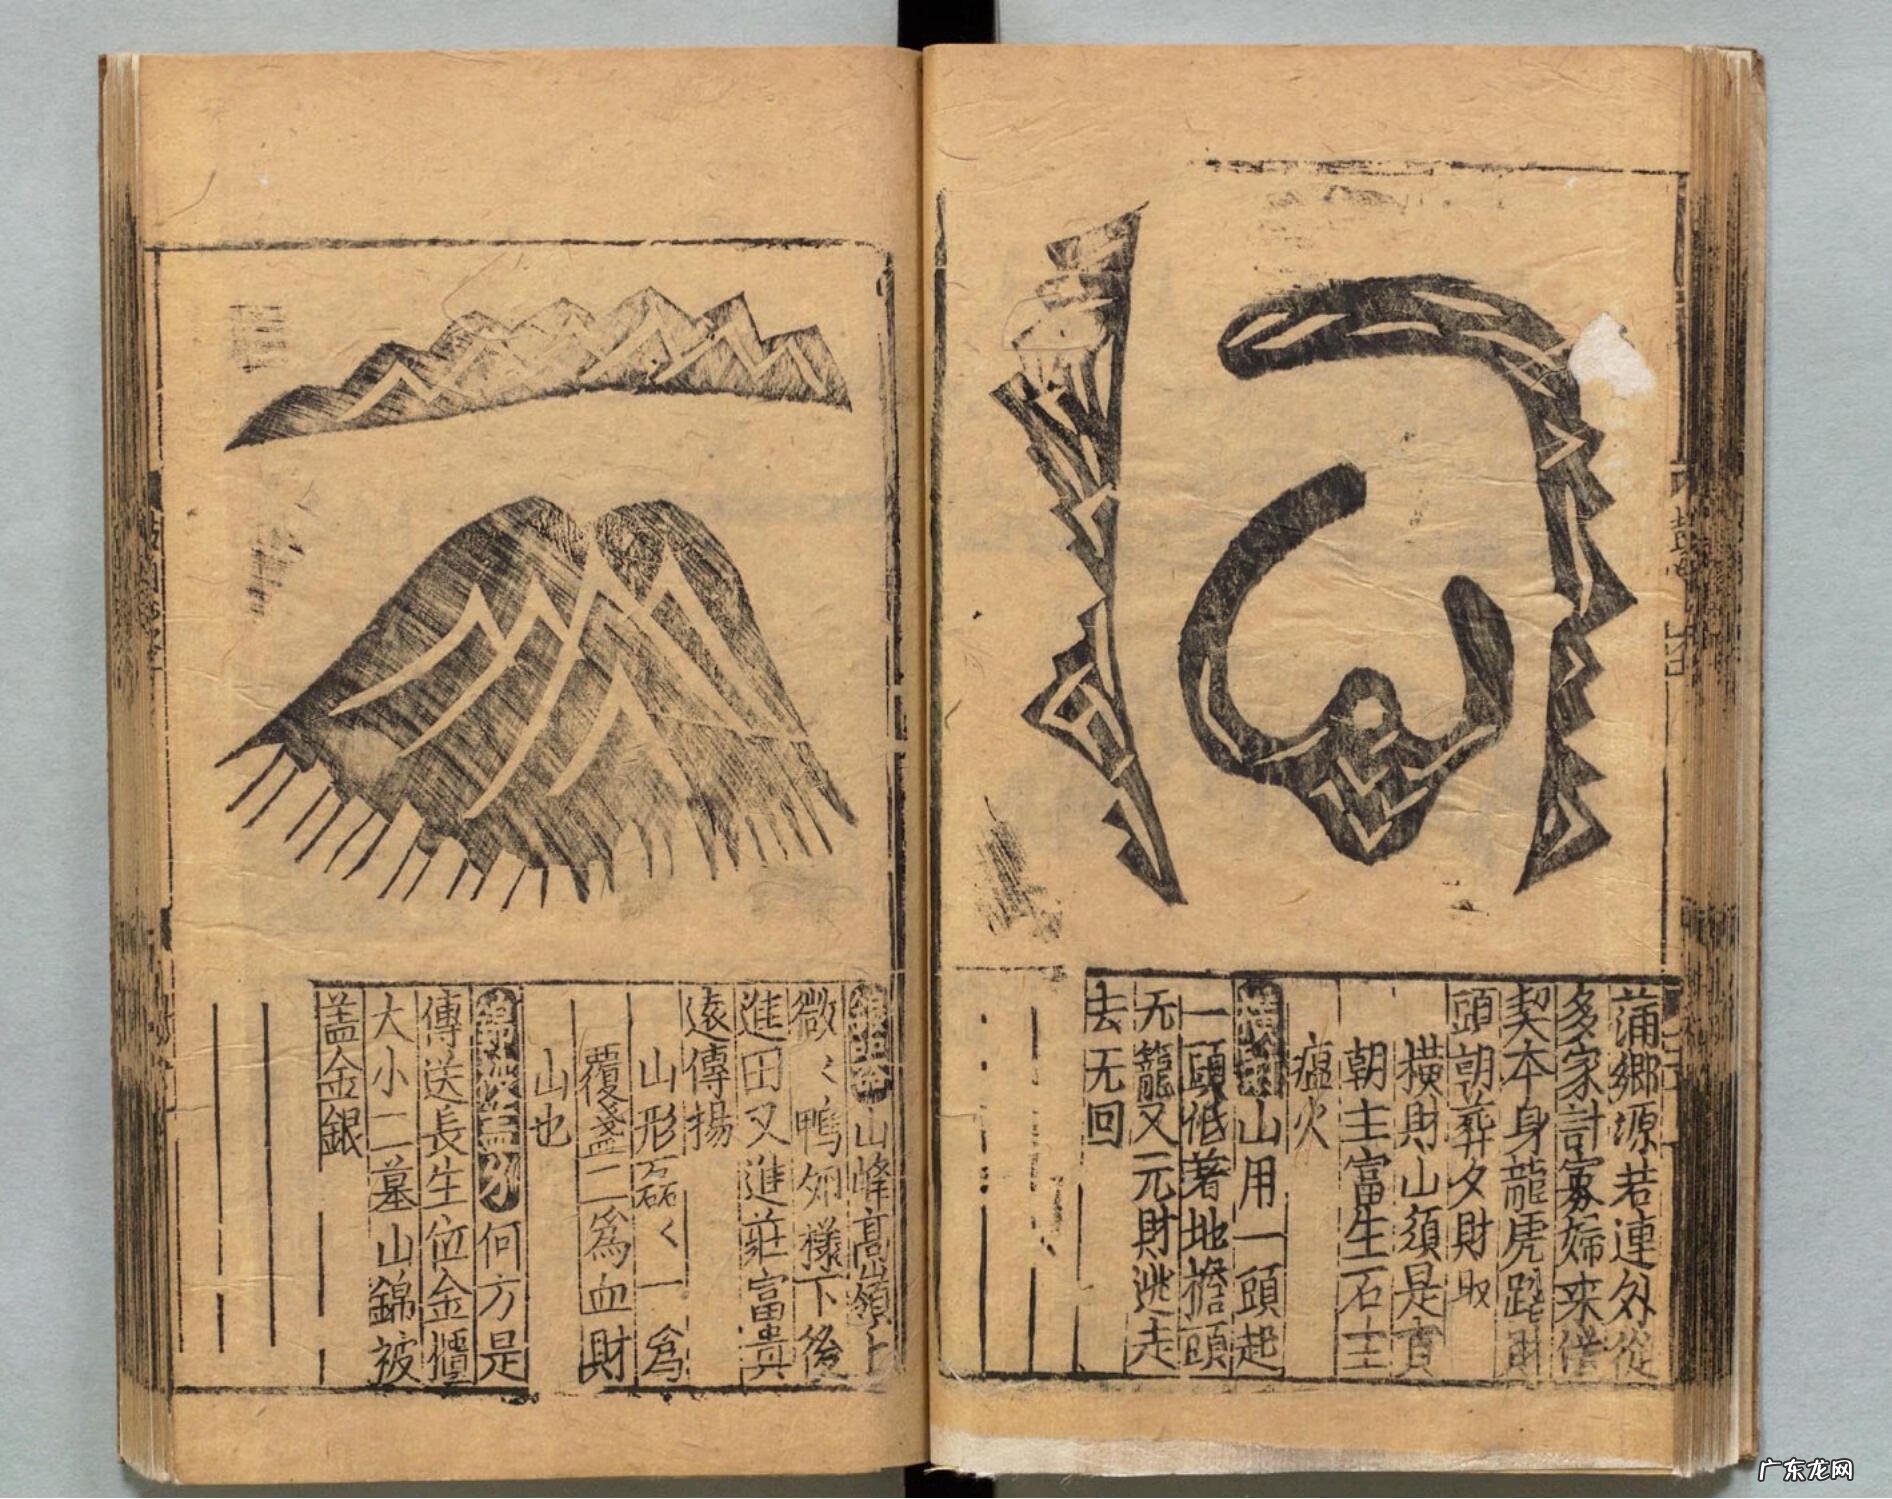 蒲鄉源若連外從
多家計寡婦来借
契本身龍虎踪財
頭朝葬夕財㪽
横財山須是貢
朝主富生石主
瘟火
山用一頭起
一頭低著地擔頭
无籠又元財逃走
去无回
山峰高嶺上
微〻鴨夘樣下後
進田又進莊富貴
遠傳揚
山形磊〻一為
覆盞二為血財
山也
何方是
傳送長生位金櫃
大小二墓山錦被
盖金銀
广东龙网